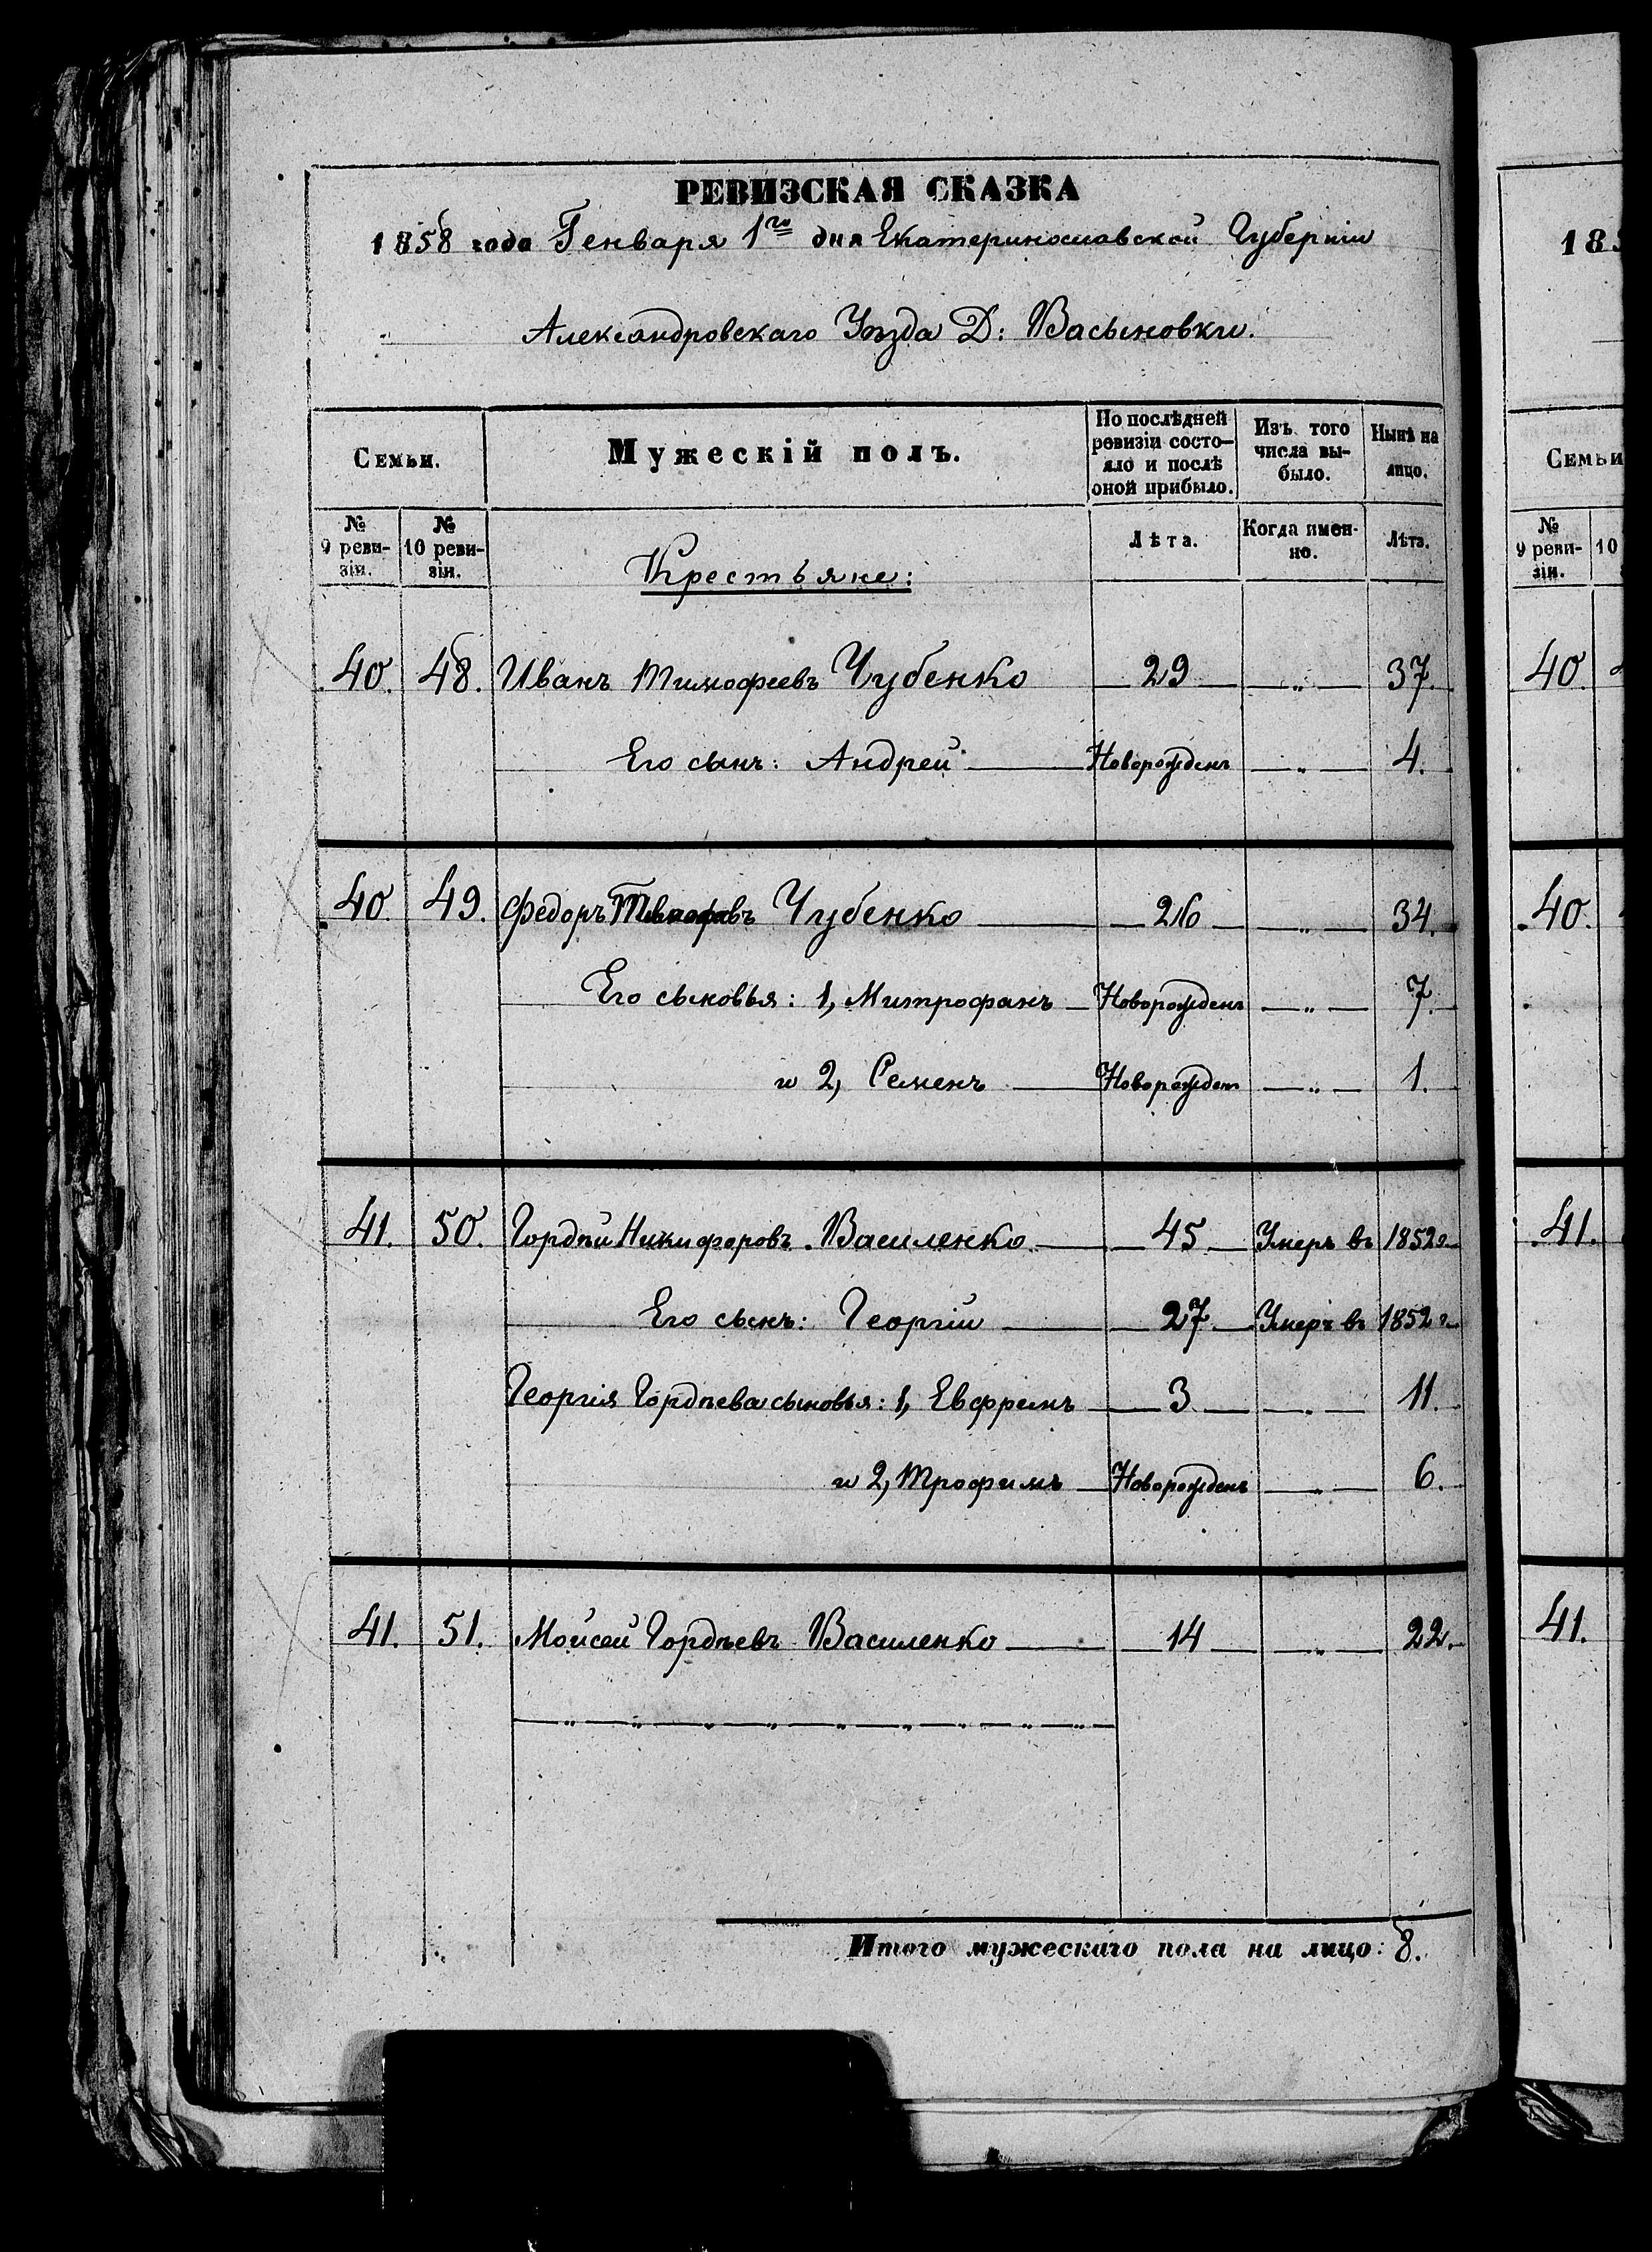 РЕВИЗСКАЯ СКАЗКА
1858 года Генваря 1го дня Екатеринославской Губерніи
Александровскаго Уѣзда Д: Васьиновки.
Семьи.
Мужескій полъ.
По послѣдней ревизіи состояло и послѣ оной прибыло.
Изъ того числа выбыло.
Нынѣ на лицо.
№ 9 ревизіи.
№ 10 ревизіи.
Крестьяне:
Лѣта.
Когда именно.
Лѣта.
40. 48. Иванъ Тимофеевъ Чубенко 29 — „ — 37.
Его сынъ: Андрей Новорожденъ — „ — 4.
40. 49. Федоръ Чубенко 26 — „ — 34.
Его сыновья: 1, Митрофанъ Новорожденъ — „ — 7.
и 2, Семенъ Новорожден — „ — 1.
41. 50. Гордѣй Никифоровъ Василенко 45 Умеръ въ 1852 г.
Его сынъ: Георгій 27 Умеръ въ 1852 г.
Георгія Гордѣева сыновья: 1, Евфремъ 3 — „ — 11.
и 2, Трофимъ Новорожденъ — „ — 6.
41. 51. Моисей Гордѣевъ Василенко 14 — „ — 22.
Итого мужескаго пола на лицо: 8.
185
Семьи
№ 9 ревизіи.
10
40
40.
41.
41.